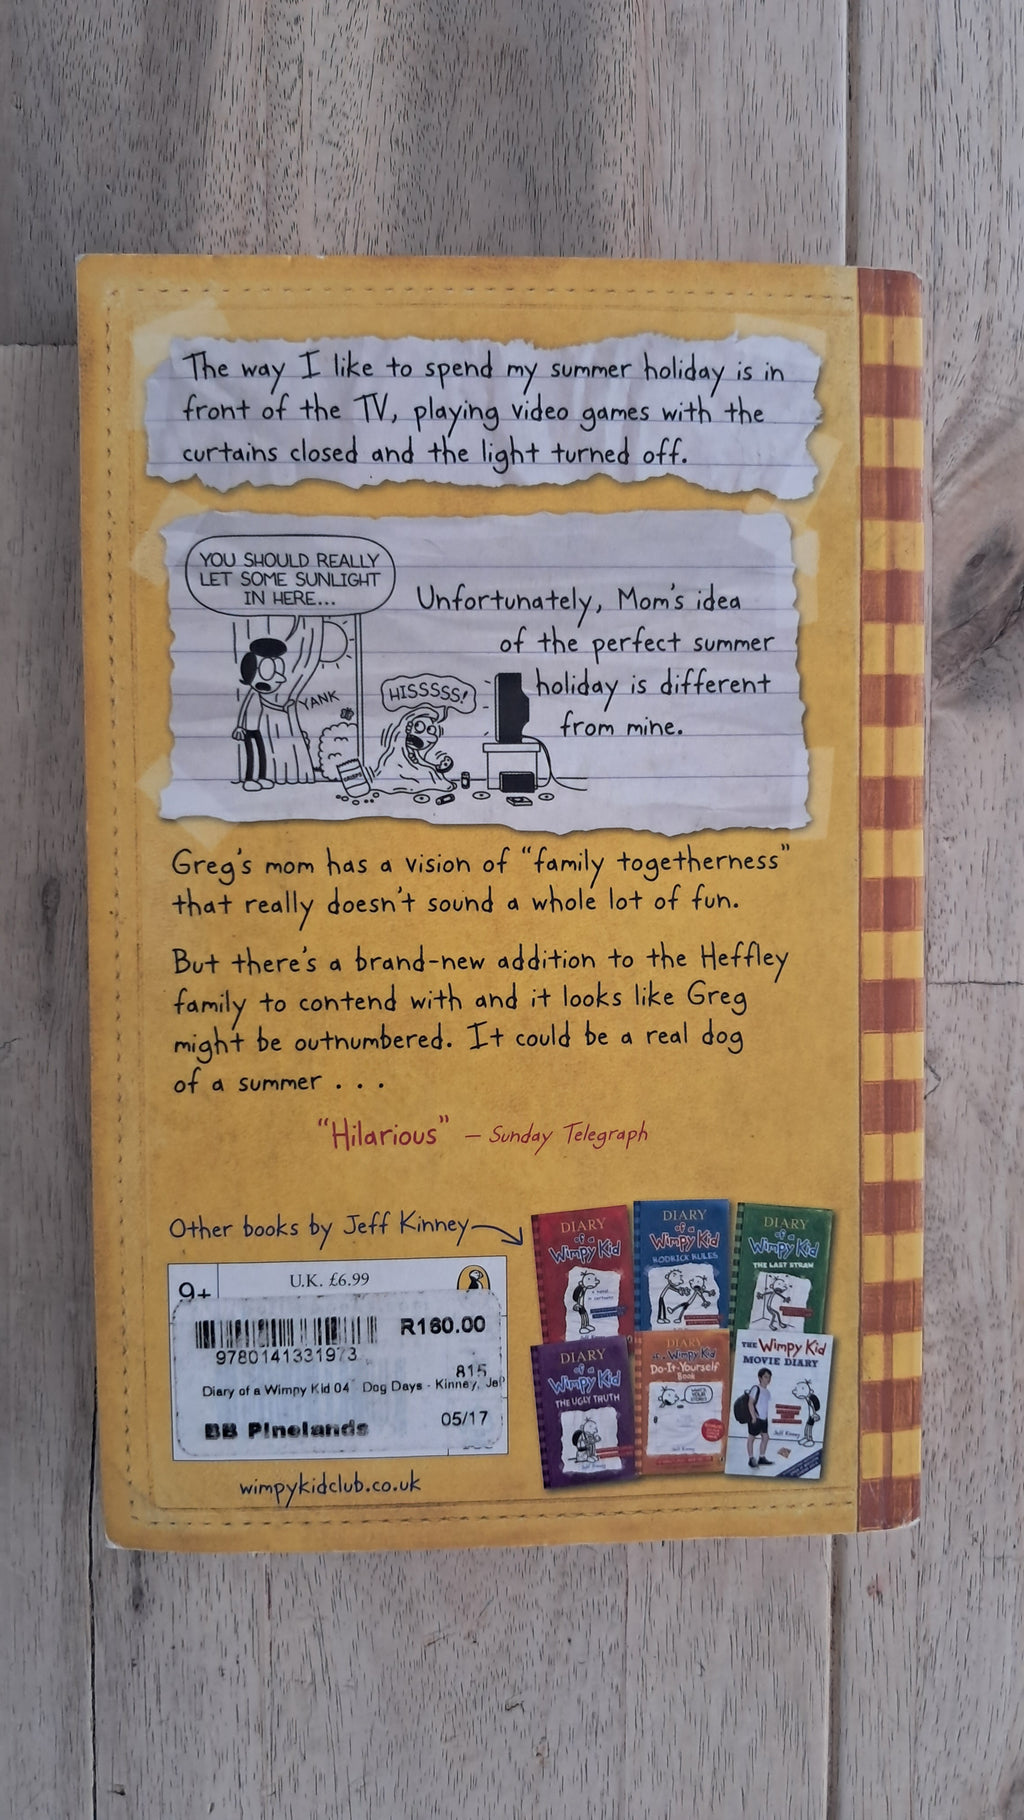 The way I like to spend my summer holiday is in
front of the TV, playing video games with the
curtains closed and the light turned off.
YOU SHOULD REALLY
LET SOME SUNLIGHT
IN HERE...
YANK
HISSSSS!
Unfortunately, Mom's idea
of the perfect summer
holiday is different
from mine.
Greg's mom has a vision of "family togetherness"
that really doesn't sound a whole lot of fun.
But there's a brand-new addition to the Heffley
family to contend with and it looks like Greg
might be outnumbered. It could be a real dog
of a summer . . .
"Hilarious" – Sunday Telegraph
Other books by Jeff Kinney
DIARY
of a
Wimpy Kid
DIARY
of a
Wimpy Kid
RODRICK RULES
DIARY
of a
Wimpy Kid
THE LAST STRAW
DIARY
of a
Wimpy Kid
THE UGLY TRUTH
DIARY
of a Wimpy Kid
Do-It-Yourself
Book
THE Wimpy Kid
MOVIE DIARY
9+
U.K. £6.99
R160.00
9780141331973
815
Diary of a Wimpy Kid 04 Dog Days - Kinney, Jef
BB Pinelands
05/17
wimpykidclub.co.uk